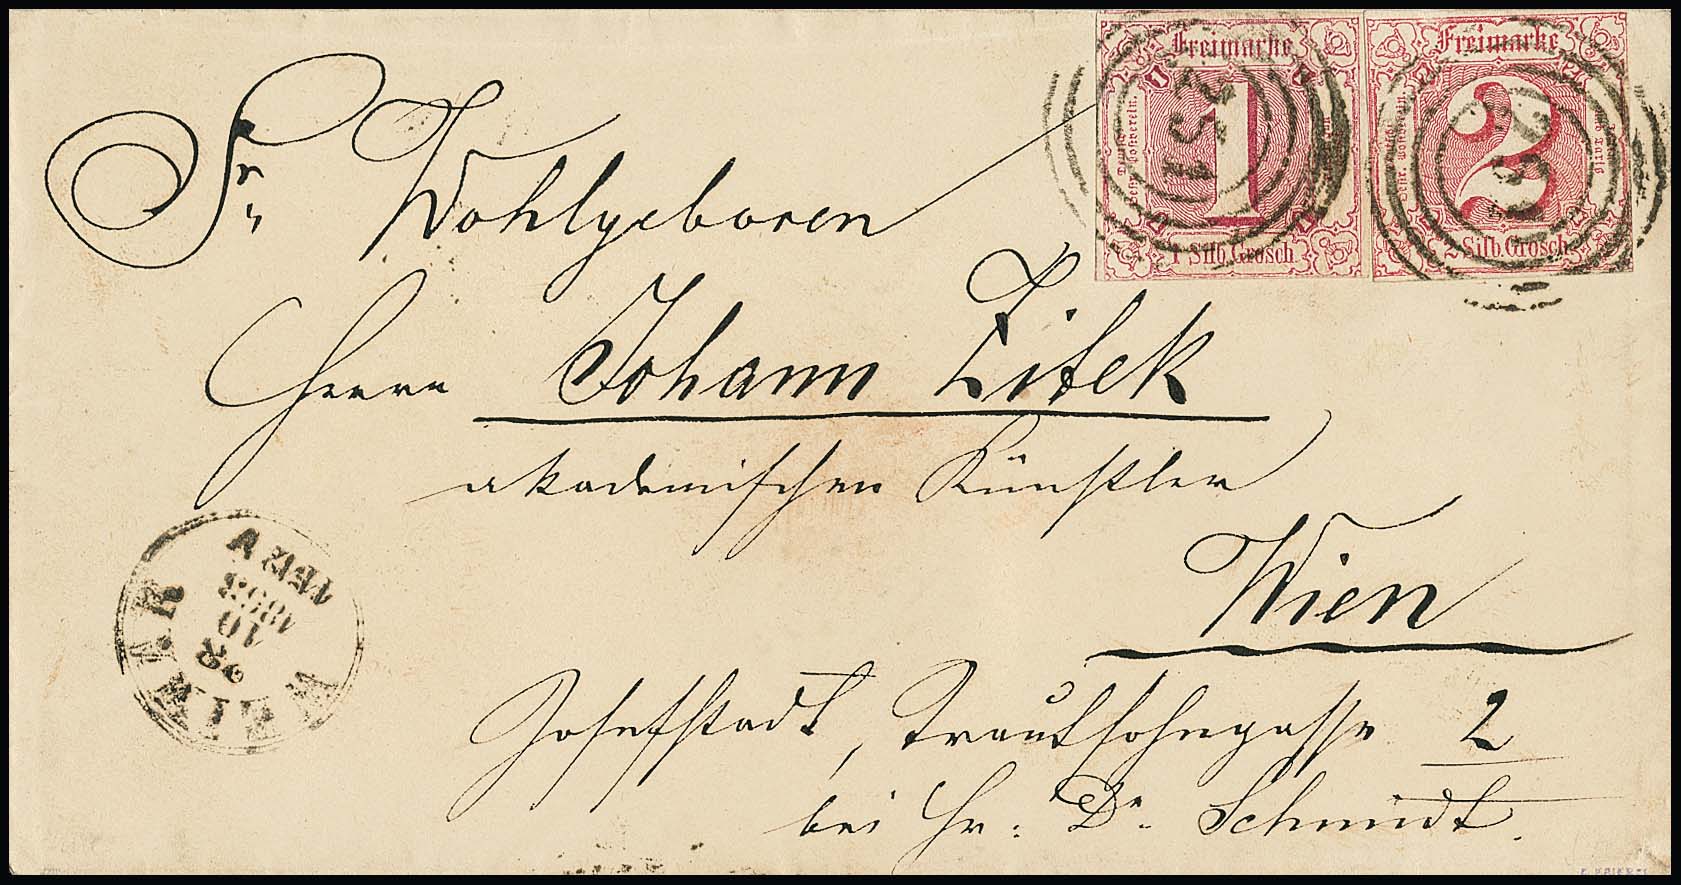 Freimarke
Deutsch-Oestr. Postverein.
1
1 Silb. Grosch
Freimarke
2
2 Silb. Grosch
251
251
Sr. Wohlgeboren
Herrn Johann Zitek
akademischen Künstler
Wien
Josefstadt, Trautsohngasse 2
bei Hr: Dr Schmidt.
WEIMAR
10